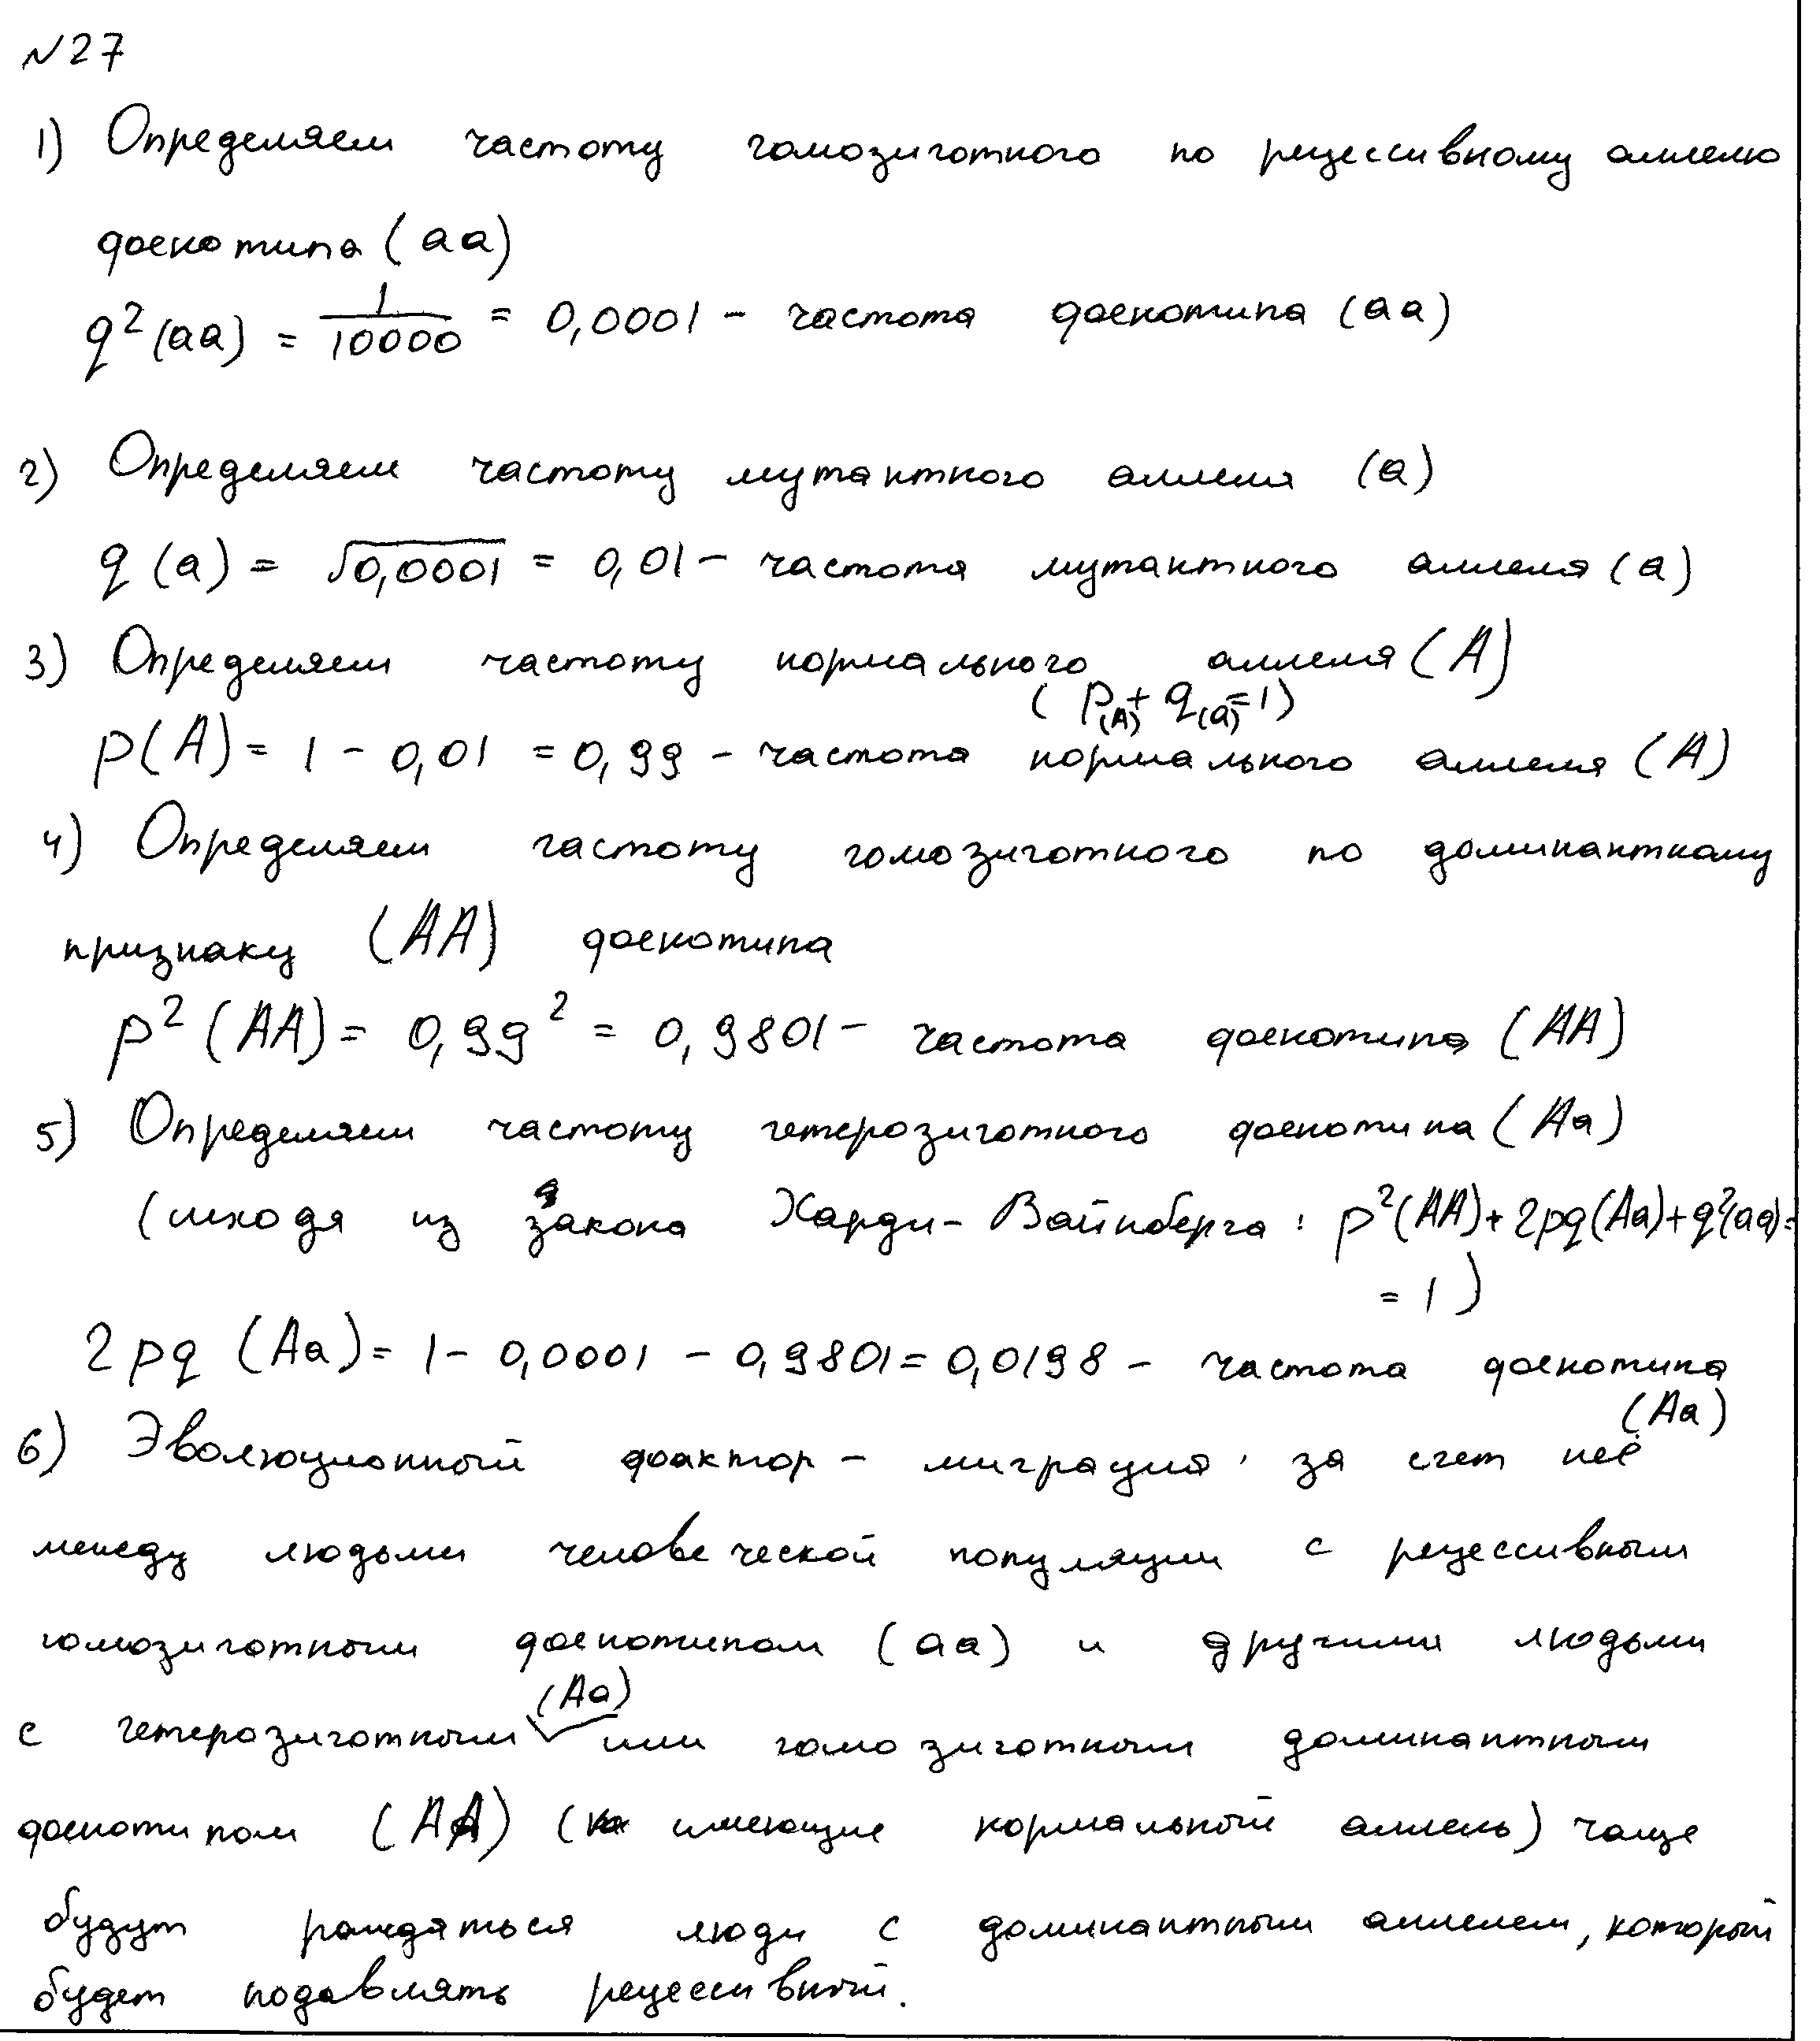 №27
1) Определяем частоту гомозиготного по рецессивному аллелю
фенотипа (аа)
q²(аа) = 1/10000 = 0,0001 - частота фенотипа (аа)
2) Определяем частоту мутантного аллеля (а)
q (а) = √0,0001 = 0,01 - частота мутантного аллеля (а)
3) Определяем частоту нормального аллеля (А)
(p(А) + q(а) = 1)
p(А) = 1 - 0,01 = 0,99 - частота нормального аллеля (А)
4) Определяем частоту гомозиготного по доминантному
признаку (АА) фенотипа
p² (АА) = 0,99² = 0,9801 - частота фенотипа (АА)
5) Определяем частоту гетерозиготного фенотипа (Аа)
(исходя из закона Харди-Вайнберга: p²(АА) + 2pq(Аа) + q²(аа) =
= 1)
2pq (Аа) = 1 - 0,0001 - 0,9801 = 0,0198 - частота фенотипа
(Аа)
6) Эволюционный фактор - миграция. за счет неё
между людьми человеческой популяции с рецессивным
гомозиготным фенотипом (аа) и другими людьми
с гетерозиготным (Аа) или гомозиготным доминантным
фенотипом (АА) (имеющие нормальный аллель) чаще
будут рождаться люди с доминантным аллелем, который
будет подавлять рецессивный.